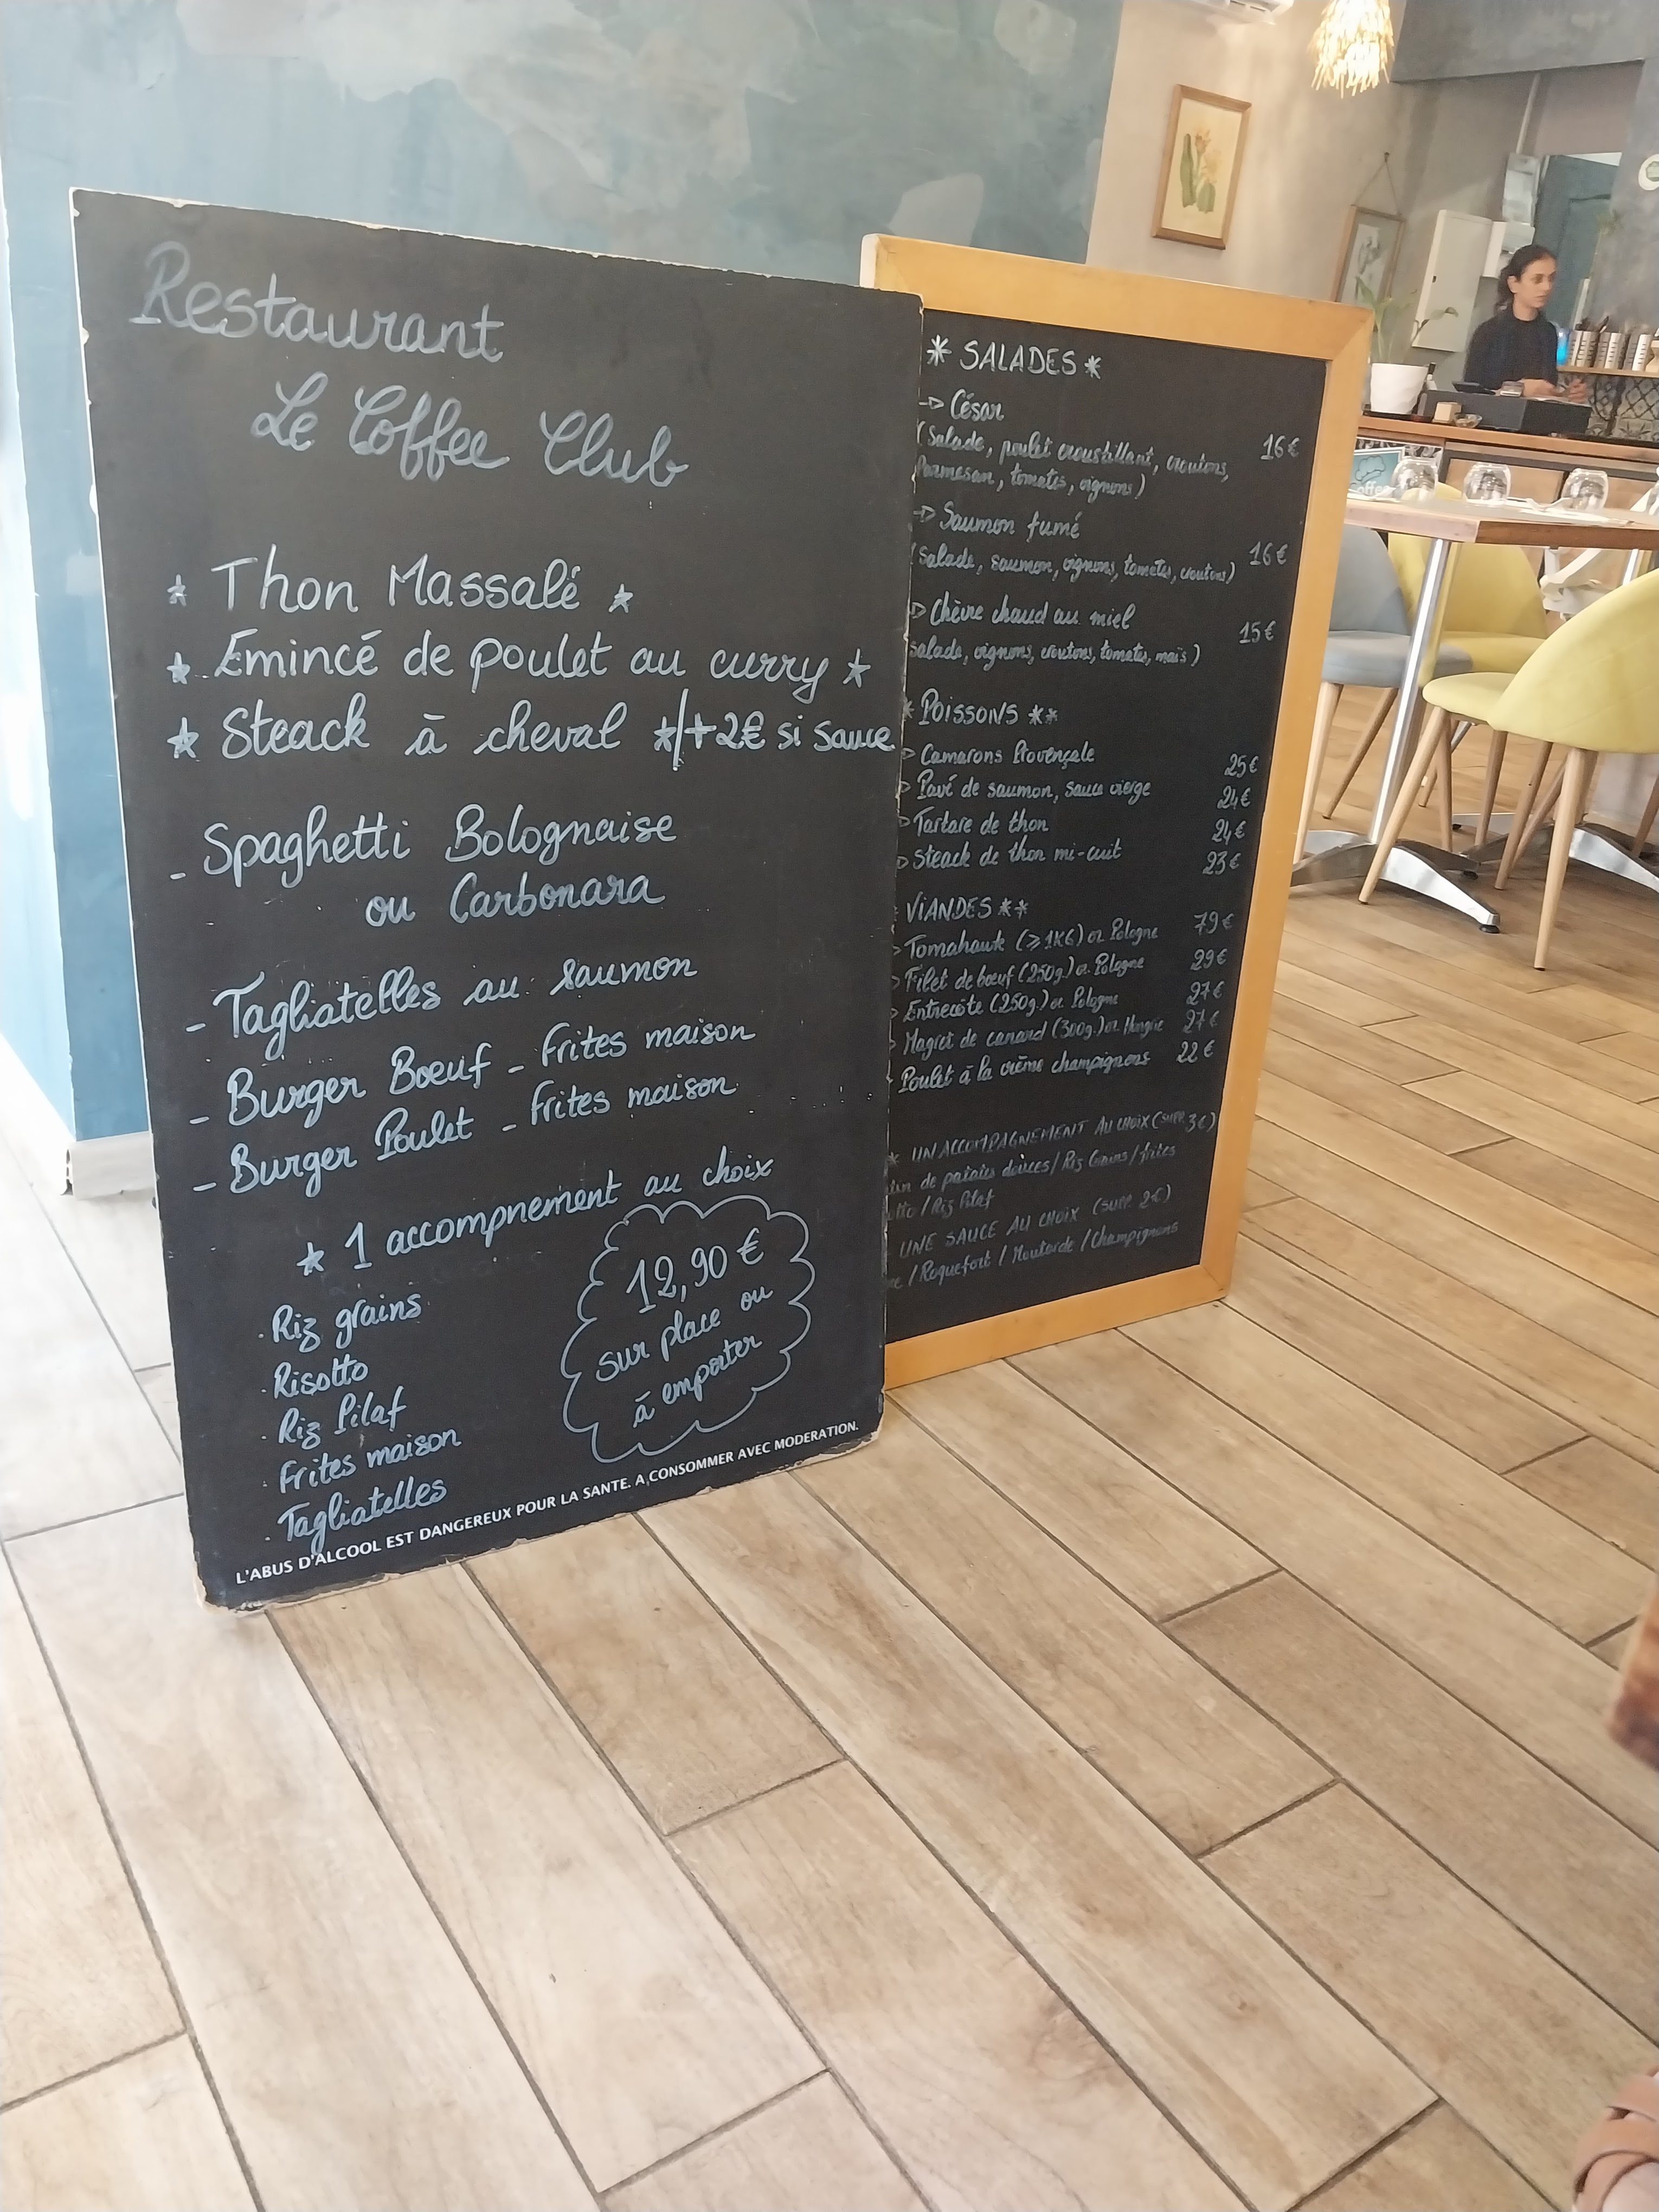 Restaurant
Le Coffee Club
* Thon Massalé *
* Emincé de poulet au curry *
* Steack à cheval */+2€ si sauce
- Spaghetti Bolognaise
ou Carbonara
- Tagliatelles au saumon
- Burger Boeuf - frites maison
- Burger Poulet - frites maison
* 1 accompnement au choix
. Riz grains
. Risotto
. Riz Pilaf
. Frites maison
. Tagliatelles
12,90 €
sur place ou
à emporter
L'ABUS D'ALCOOL EST DANGEREUX POUR LA SANTE. A CONSOMMER AVEC MODERATION.
* SALADES *
César
(Salade, poulet croustillant, croutons, 16€
Parmesan, tomates, oignons)
Saumon fumé
(Salade, saumon, oignons, tomates, croutons) 16€
Chèvre chaud au miel
salade, oignons, croutons, tomates, maïs) 15€
* POISSONS **
Camarons Provençale 25€
Pavé de saumon, sauce vierge 24€
Tartare de thon 24€
Steack de thon mi-cuit 23€
VIANDES **
Tomahawk (≥1KG) or Pologne 79€
Filet de bœuf (250g.) or Pologne 29€
Entrecôte (250g.) or Pologne 27€
Magret de canard (300g.) or Hongrie 27€
Poulet à la crème champignons 22€
* UN ACCOMPAGNEMENT AU CHOIX (supp. 3€)
de patates douces / Riz Grains / frites
/ Riz Pilaf
UNE SAUCE AU CHOIX (SUPP. 2€)
/ Roquefort / Moutarde / Champignons